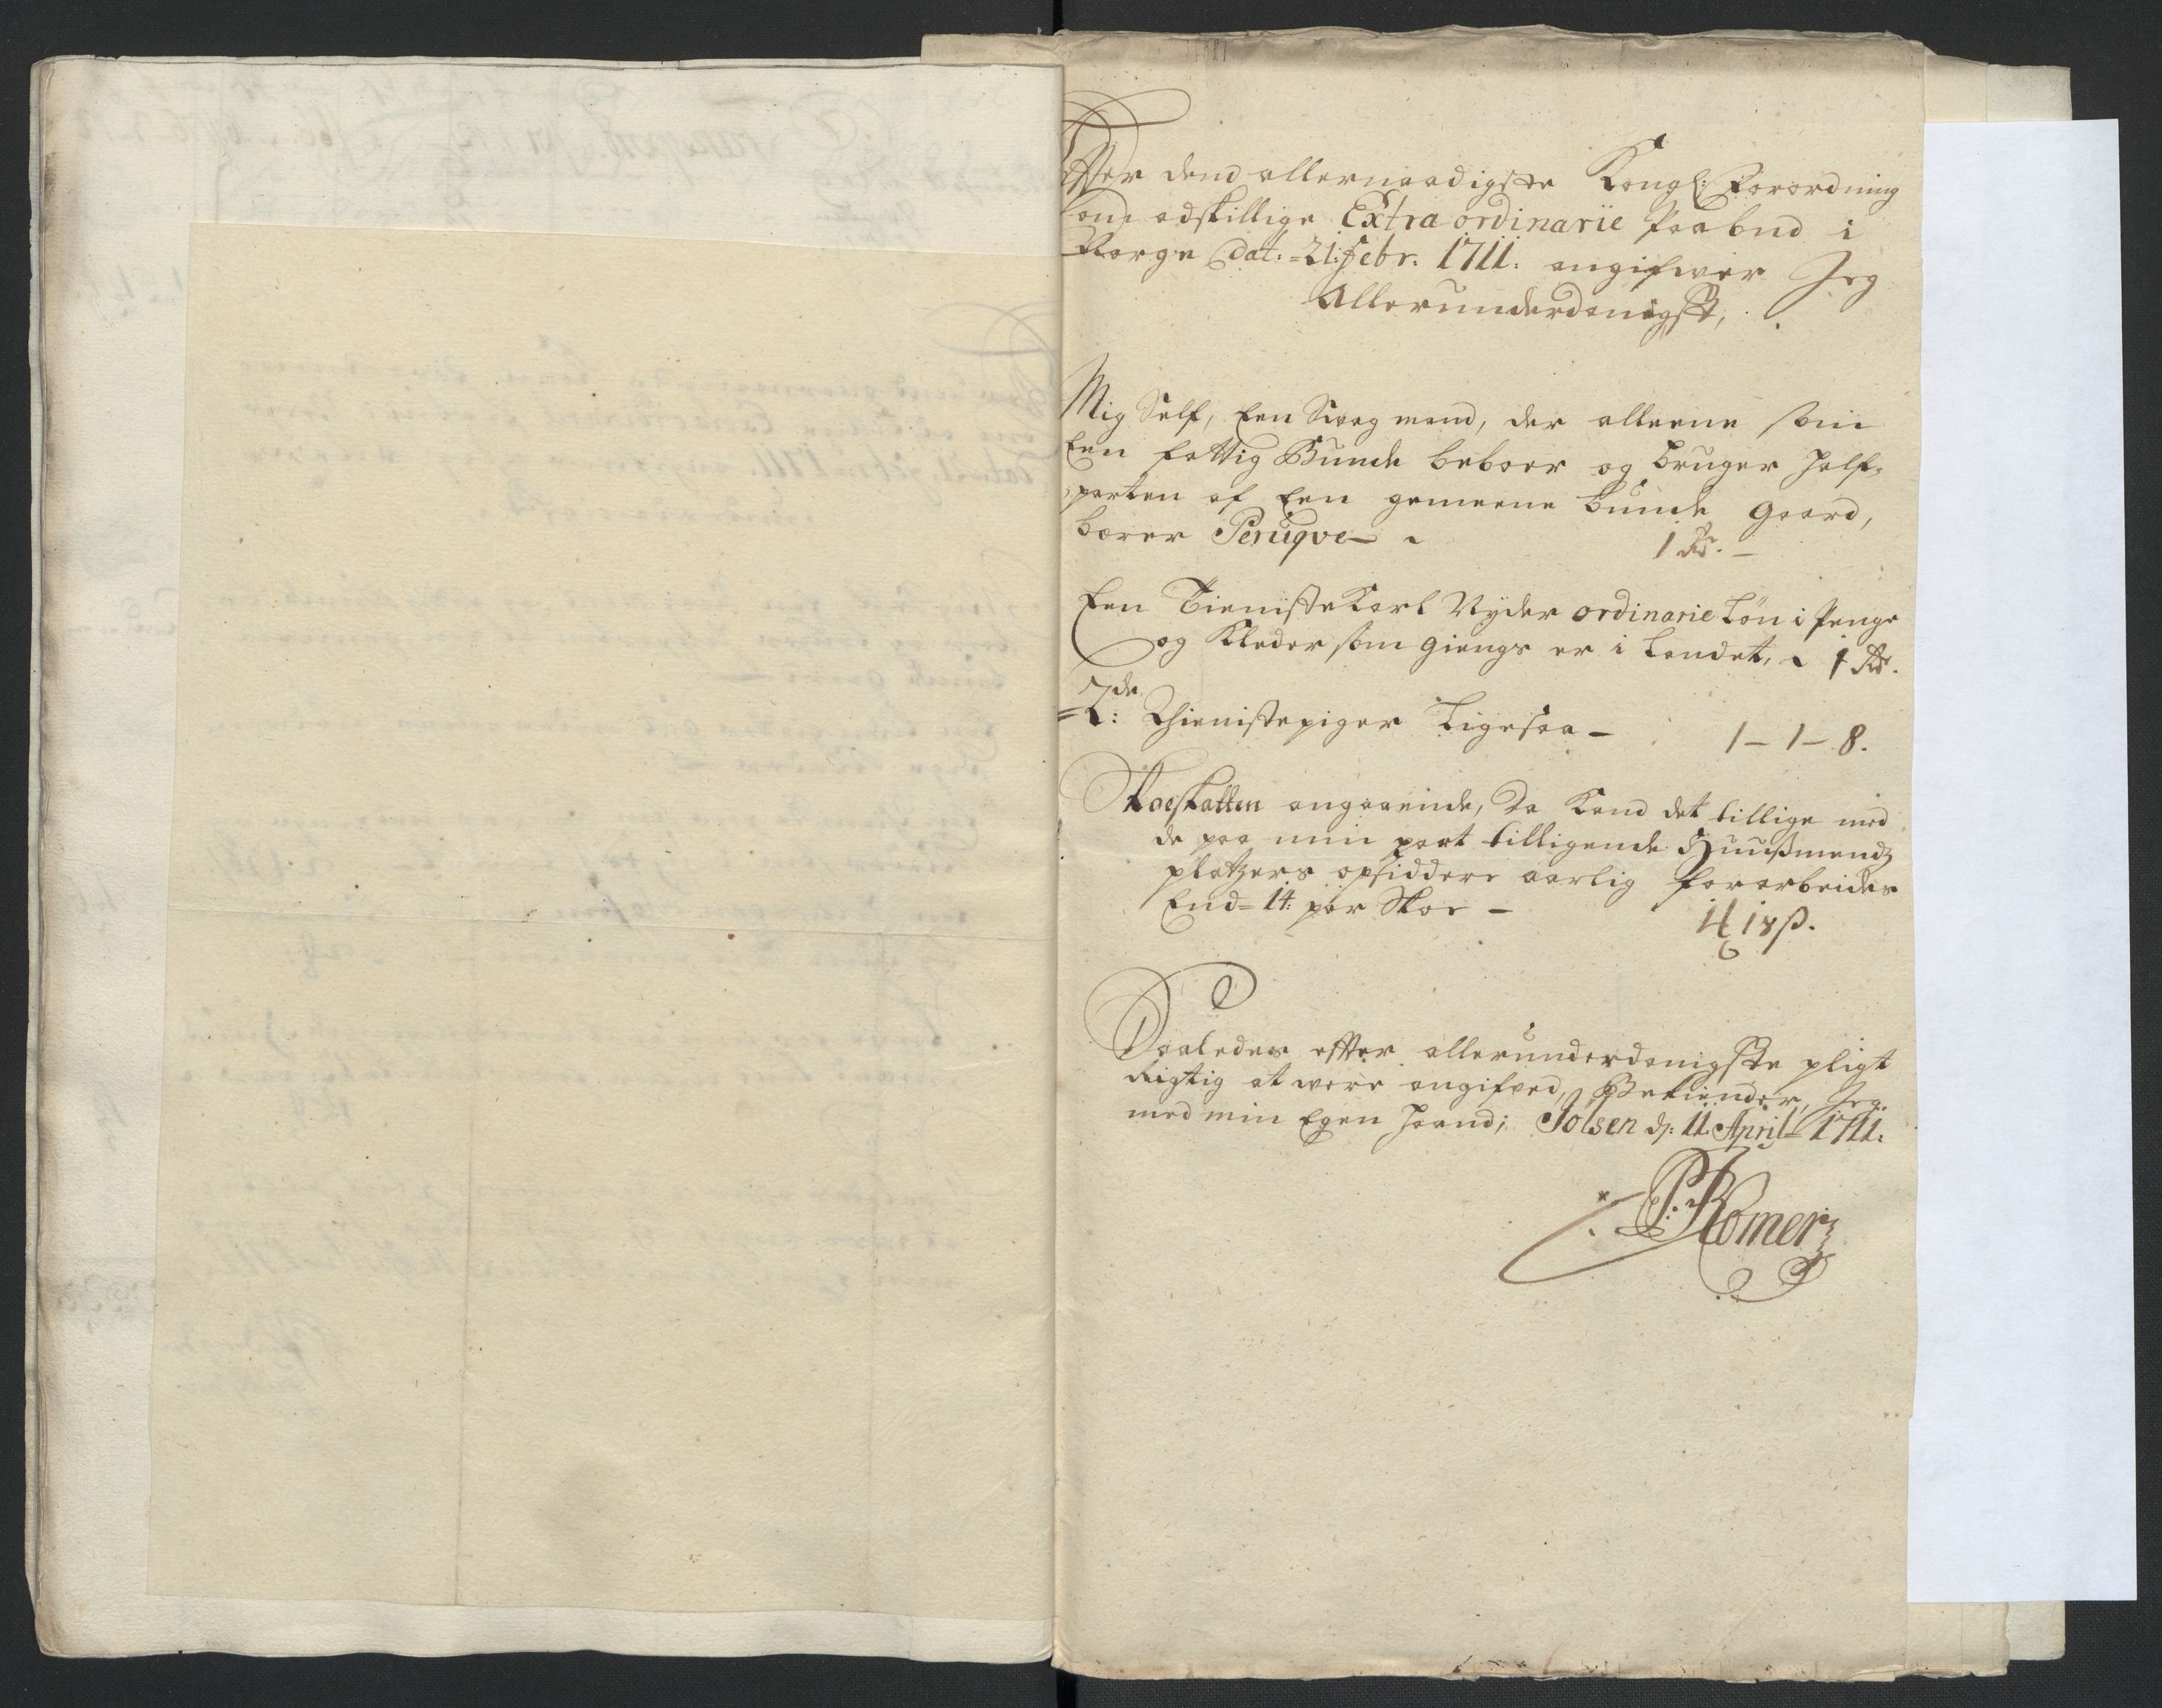 Effter dend allernaadigste Kongl: Forordning
om adskillige Extra ordinarie Paabud i
Norge dat: 21: Febr: 1711: angifwer Jeg
Allerunderdanigst,
Mig Self, Een Swag mand, der alleene som
Een fattig Bunde beboer og bruger half-
parten af Een gemeene bunde gaard,
bærer Peruqve - 1 Rdr. -
Een Tieniste Karl Nyder ordinarie Løn i Penge
og Klæder som giengs er i Landet, - 1 Rdr.
2de
Thienistepiger Ligesaa - 1 - 1 - 8.
Skoeskatten angaaende, Da Kand det tillige med
de paa min part tilligende Huusmends
platzers opsiddere aarlig forarbeides
End= 14: par Skoe - 18 ß.
Saaledes effter allerunderdanigste pligt
Rigtig at være angifved, Bekiender Jeg
med min Egen Haand; Solsen d: 11 April 1711:
P: Romer